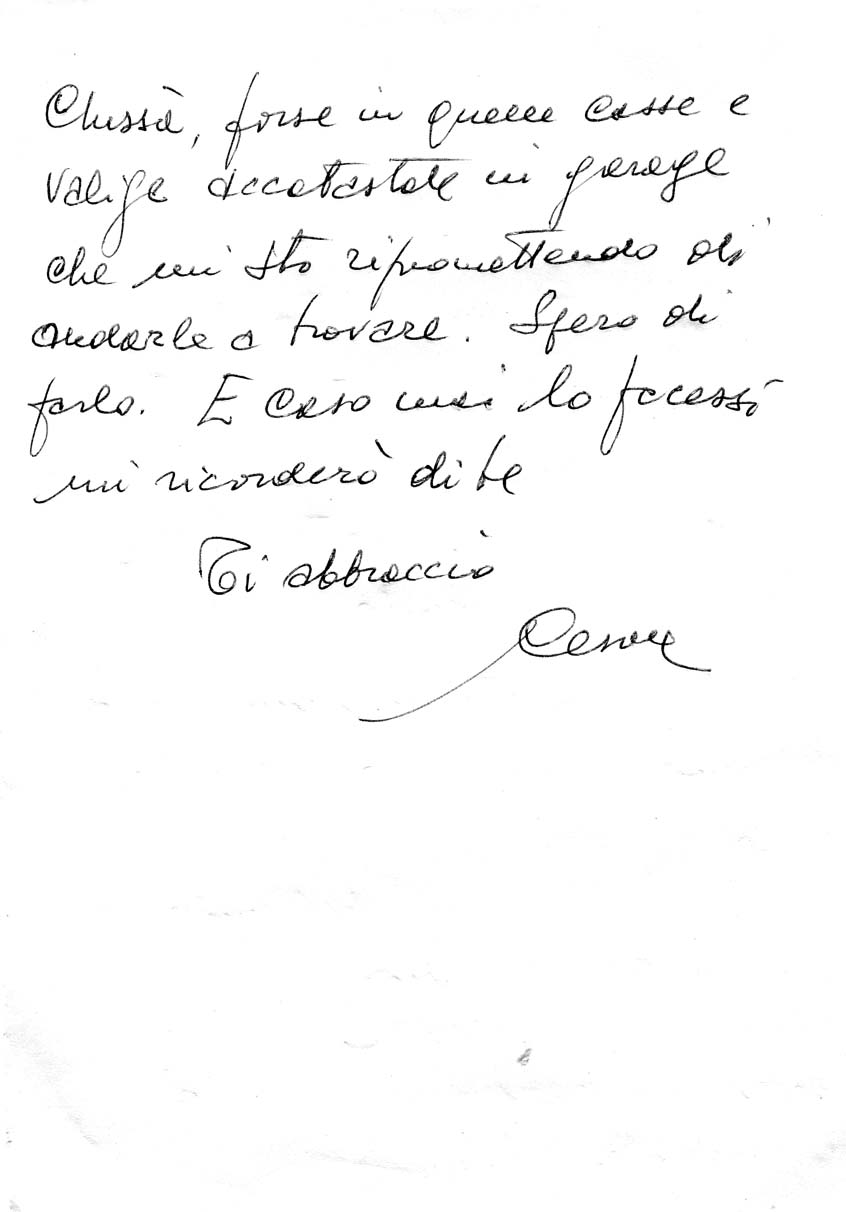 Chissà, forse in quelle casse e
valige accatastate in garage
che mi sto ripromettendo di
andarle a trovare. Spero di
farlo. E caso mai lo facessi
mi ricorderò di te
Ti abbraccio
Cesare